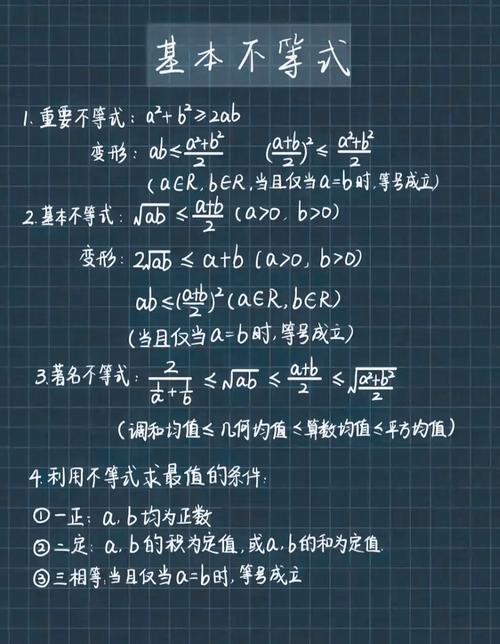 基本不等式
1. 重要不等式: a²+b²≥2ab
变形: ab≤(a²+b²)/2  ((a+b)/2)²≤(a²+b²)/2
(a∈R, b∈R, 当且仅当a=b时, 等号成立)
2. 基本不等式: √ab ≤ (a+b)/2 (a>0, b>0)
变形: 2√ab ≤ a+b (a>0, b>0)
ab≤((a+b)/2)² (a∈R, b∈R)
(当且仅当a=b时, 等号成立)
3. 著名不等式: 2/(1/a+1/b) ≤ √ab ≤ (a+b)/2 ≤ √((a²+b²)/2)
(调和均值≤几何均值≤算数均值≤平方均值)
4. 利用不等式求最值的条件:
①一正: a, b均为正数
②二定: a, b的积为定值, 或a, b的和为定值.
③三相等: 当且仅当a=b时, 等号成立